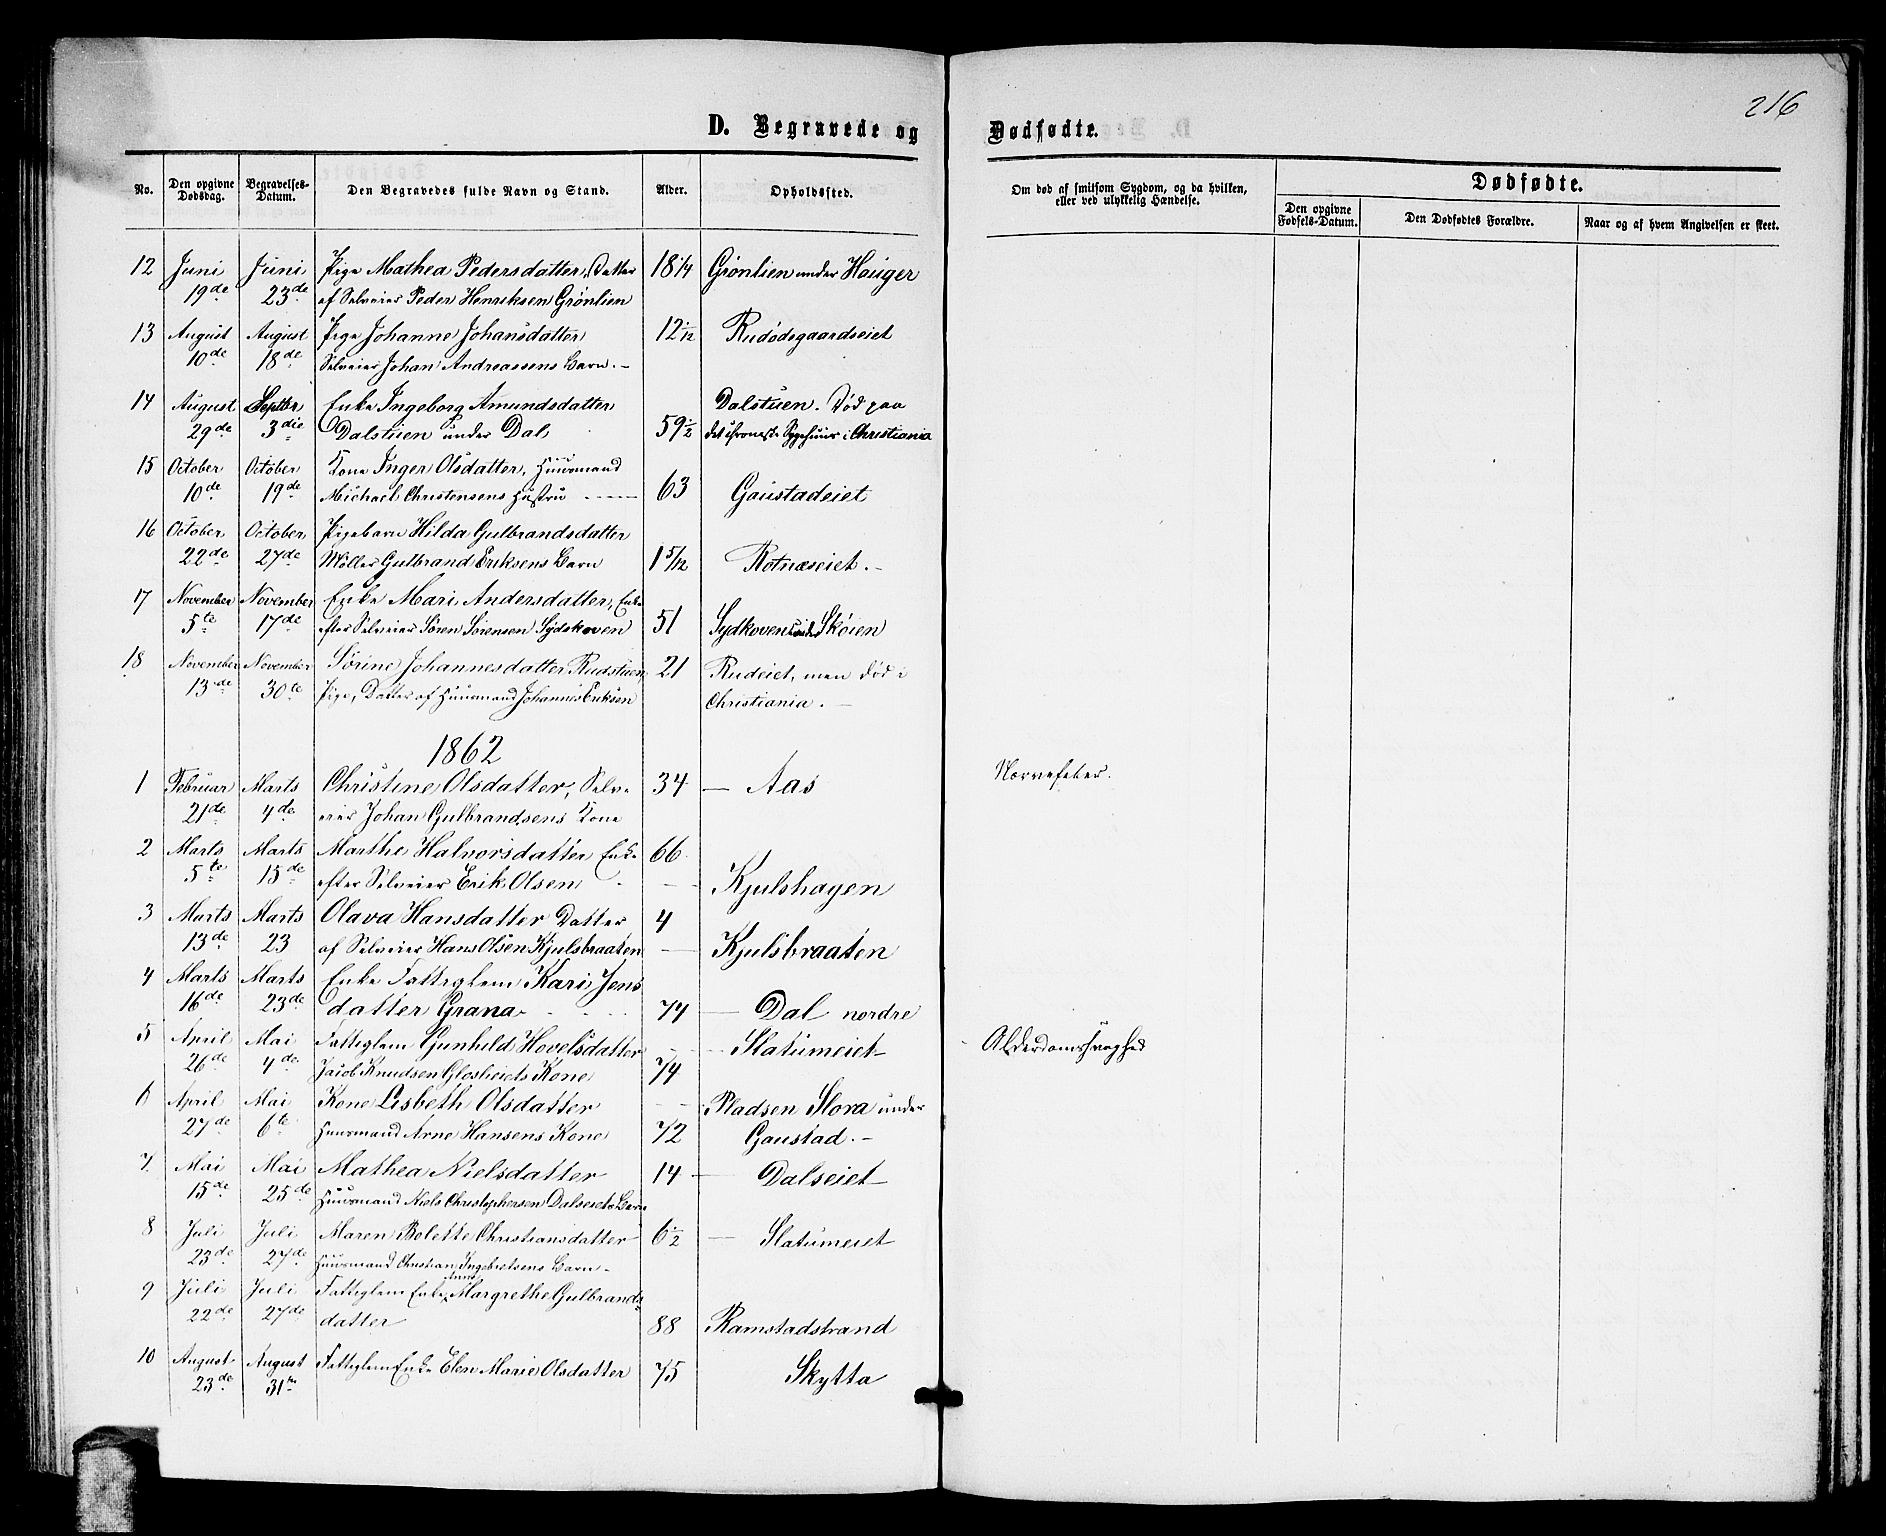 216
D. Begravede og Dødfødte.
No. | Den opgivne Dødsdag. | Begravelses-Datum. | Den Begravedes fulde Navn og Stand. | Alder. | Opholdssted. | Om død af smitsom Sygdom, og da hvilken, eller ved ulykkelig Hændelse. | Dødfødte. | Den opgivne Fødsels-Datum. | Den Dødfødtes Forældre. | Naar og af hvem Angivelsen er skeet.
12 Juni Juni Pige Mathea Pedersdatter, Datter 18 1/4 Grönlien under Hauger
19de 23de af Selveier Peder Henriksen Grönlien
13 August August Pige Johanne Johansdatter 12 1/12 Rudödegaardseiet
10de 18de Selveier Johan Andreassens Barn.
14 August Septbr Enke Ingeborg Amundsdatter Dalstuen. Död paa
29de 3die Dalstuen under Dal 59 1/2 det chroniske Sygehuus i Christiania
15 October October Kone Inger Olsdatter, Huusmand
10de 19de Michael Christensens Hustru 63 Gaustadeiet
16 October October Pigebarn Hilda Gulbrandsdatter
22de 27de Möller Gulbrand Eriksens Barn 1 5/12 Rotnæseiet.
17 November November Enke Mari Andersdatter, Enke
5te 17de efter Selveier Sören Sörensen Sydskoven 51 Sydskoven under Sköien
18 November November Sörine Johannesdatter Rudstuen, 21 Rudeiet, men död i
13de 30te Pige, Datter af Huusmand Johannes Eriksen Christiania.
1862
1 Februar Marts Christine Olsdatter, Selv- 34 Aas Nervefeber.
21de 4de eier Johan Gulbrandsens Kone
2 Marts Marts Marthe Halvorsdatter Enke 66
5te 15de efter Selveier Erik Olsen Kjulshagen
3 Marts Marts Olava Hansdatter Datter 4
13de 23 af Selveier Hans Olsen Kjulsbraaten Kjulsbraaten
4 Marts Marts Enke Fattiglem Kari Jens
16de 23de datter Grana 74 Dal nordre
5 April Mai Fattiglem Gunhild Hovelsdatter Slatumeiet Alderdomssvaghed
26de 4de Jacob Knudsen Kone 74
6 April Mai Kone Lisbeth Olsdatter Pladsen Slora under
27de 6te Huusmand Arne Hansens Kone 72 Gaustad.
7 Mai Mai Mathea Nielsdatter 14 Dalseiet
15de 25de Huusmand Niels Christophersen Dalseiets Barn
8 Juli Juli Maren Bolette Christiansdatter 6 1/2 Slatumeiet
23de 27de Huusmand Christian Ingebretsens Barn
9 Juli Juli Fattiglem Enke Anne Margrethe Gulbrands-
22de 27de datter 88 Ramstadstrand
10 August August Fattiglem Enke Elen Marie Olsdatter 75 Skytta
23de 31te